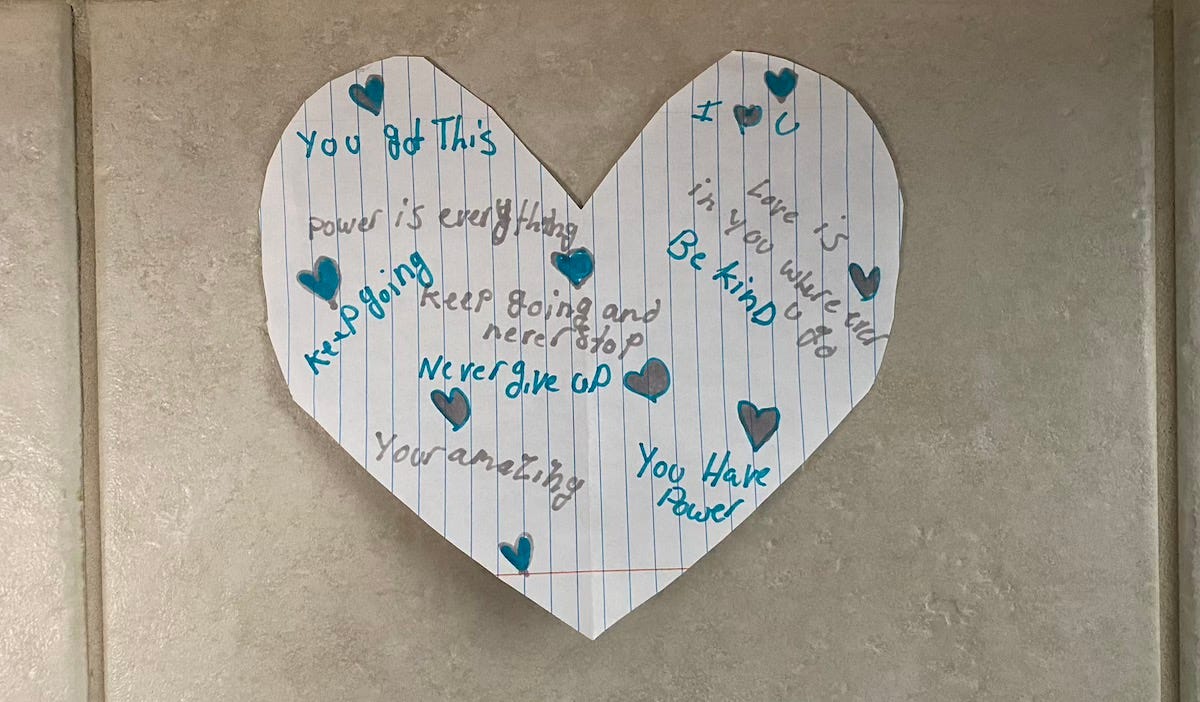 You got This
I U
power is everything
Love is
in you where ever
u go
Be kinD
keep going
keep going and
never stop
Never give up
Your amazing
You Have
Power